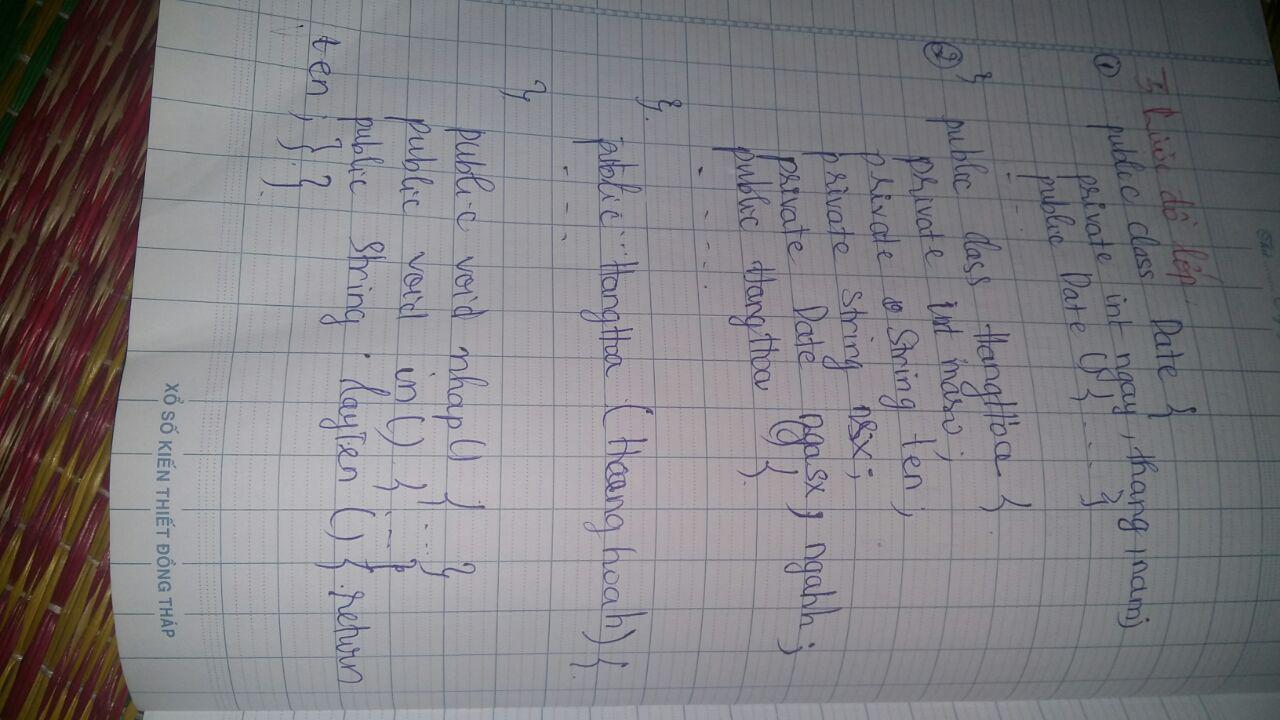 3 Lược đồ lớp.
① public class Date {
private int ngay, thang, nam;
public Date () { .... }
- - - .
}
② public class HangHoa {
private int maso;
private String ten;
private string nsx;
private Date ngasx, ngahh;
public HangHoa () {
- - - - .
}.
public HangHoa (Haang hoah) {.
- - -
}
public void nhap() { ... }
public void in() { ... }
public String layTen () { return
ten; } }.
XỔ SỐ KIẾN THIẾT ĐỒNG THÁP